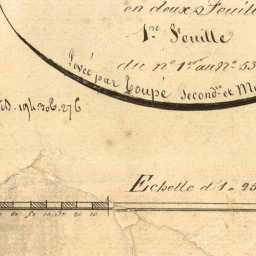 en deux Feuille
1.re Feuille
du n° 1er au n° 53
Levée par Toupé Second.re et M
Echelle d'1 à 25